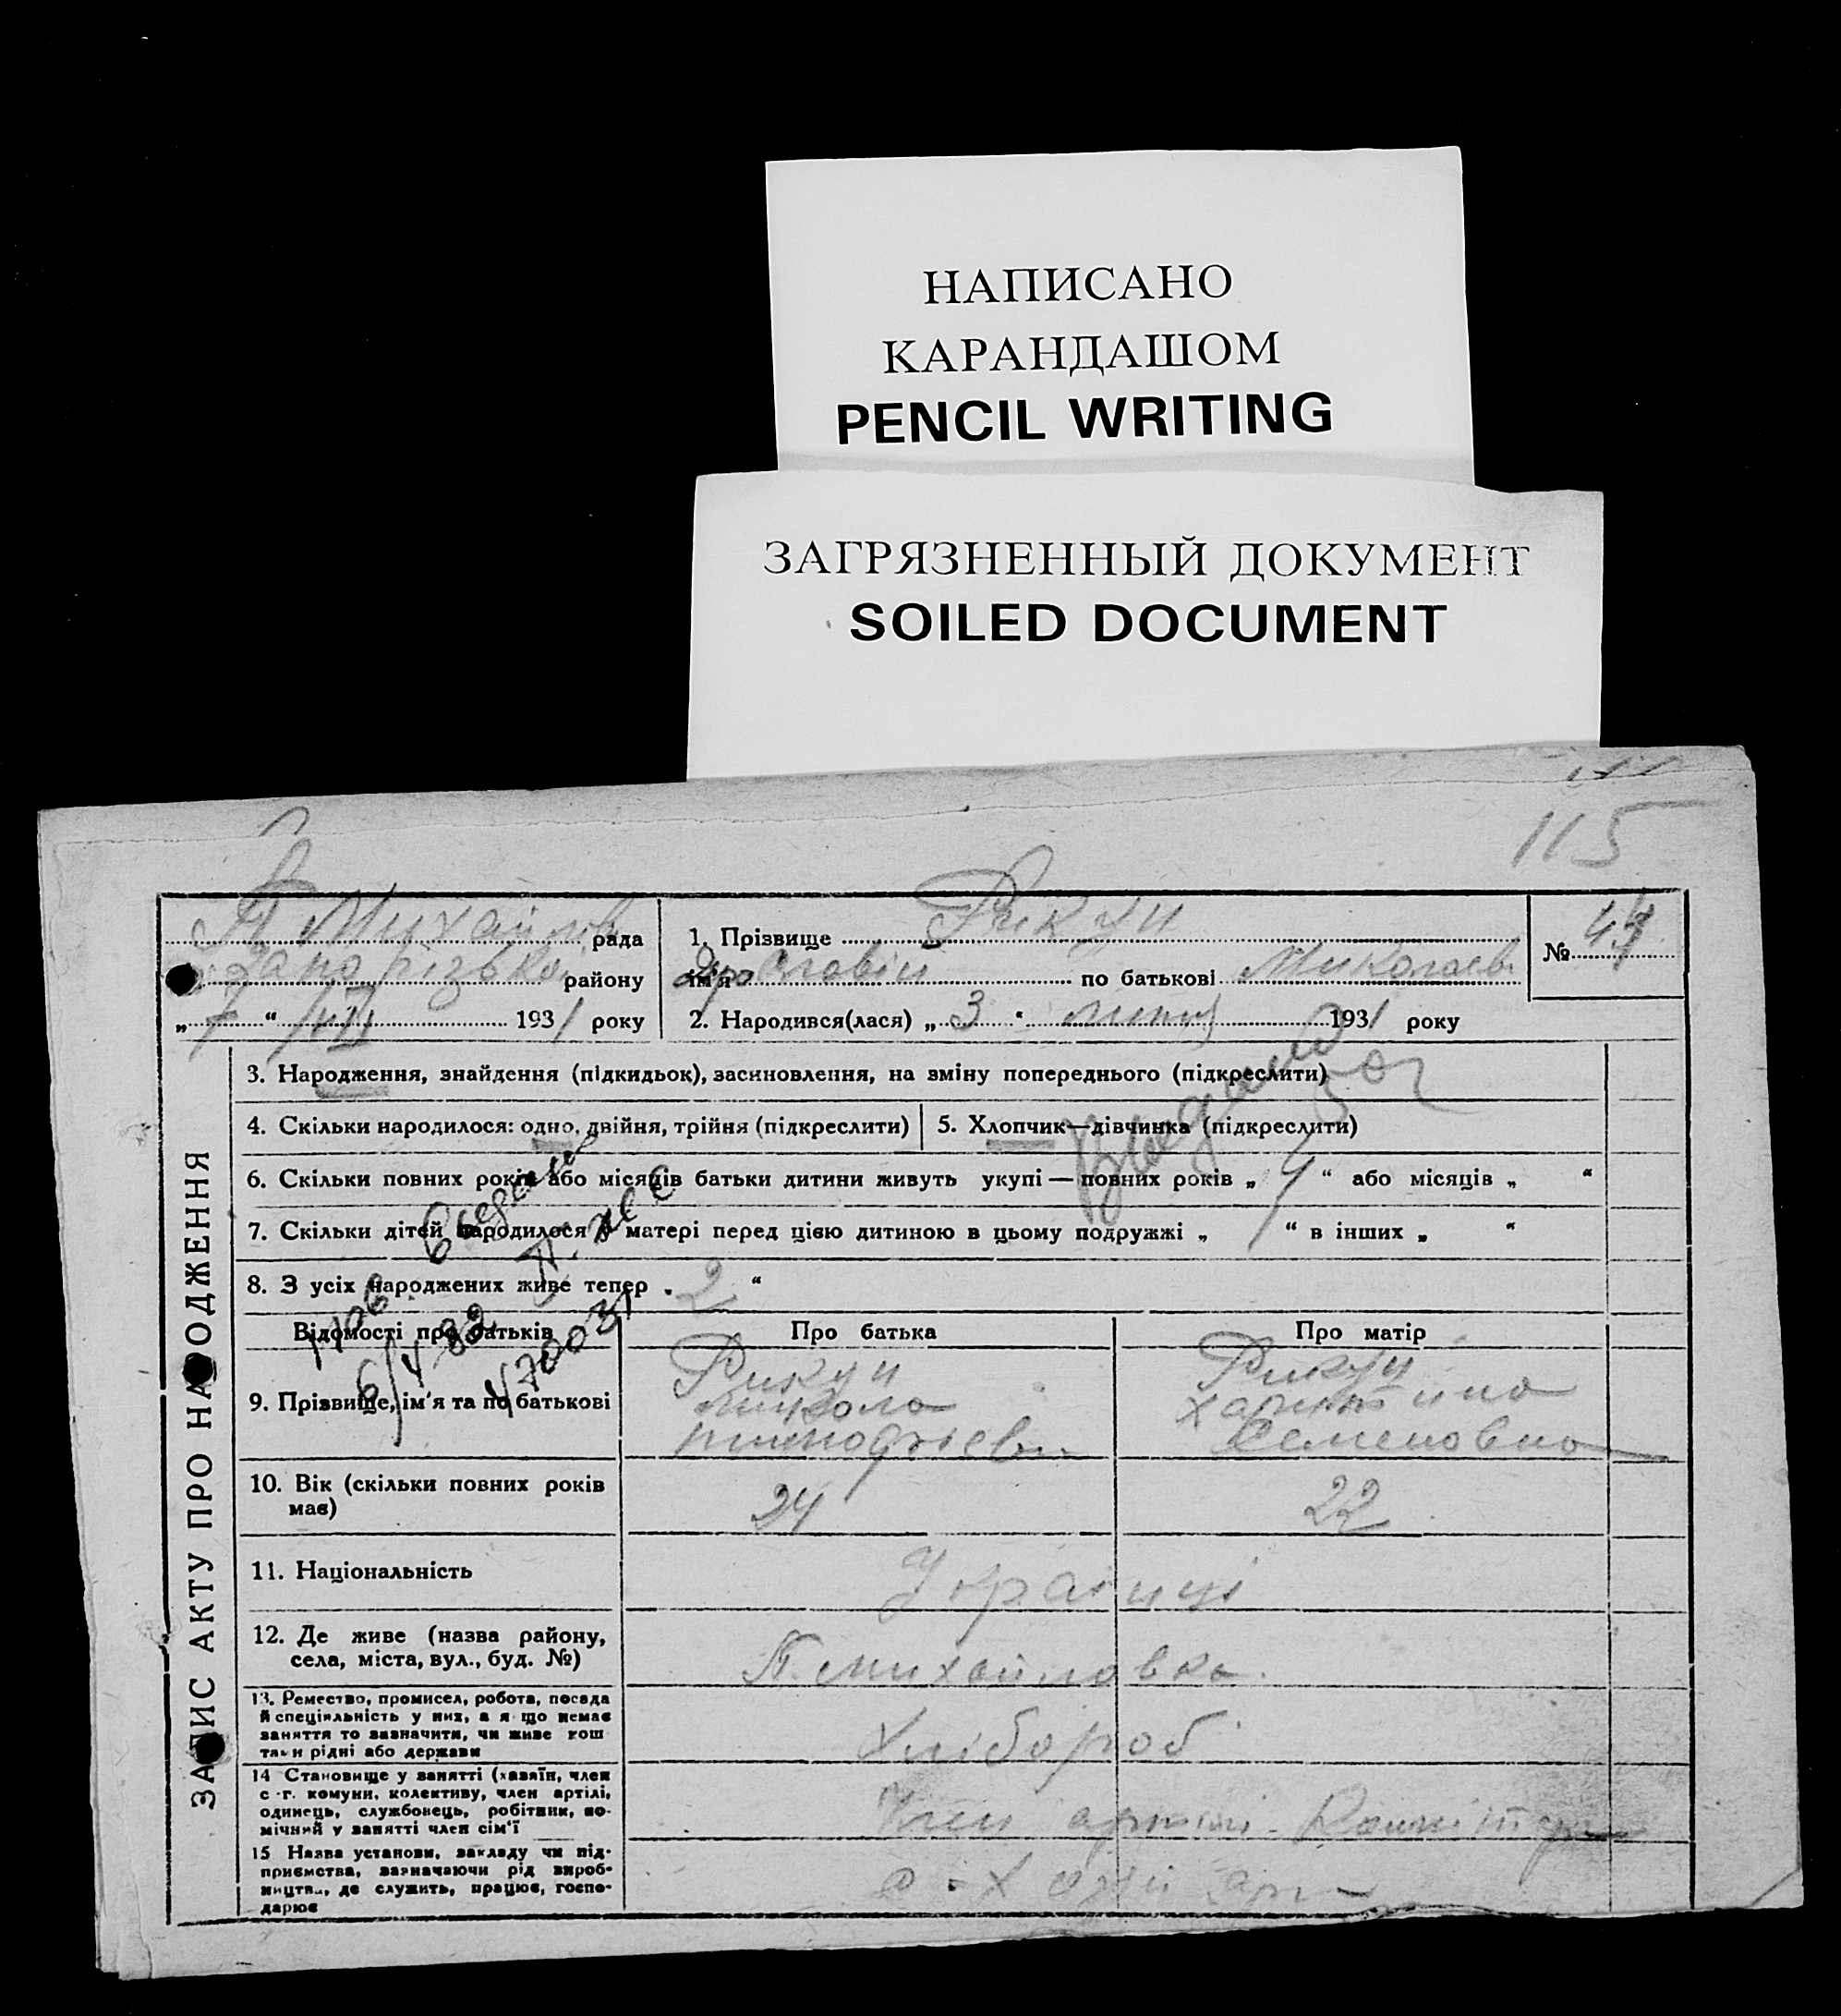 НАПИСАНО
КАРАНДАШОМ
PENCIL WRITING
ЗАГРЯЗНЕННЫЙ ДОКУМЕНТ
SOILED DOCUMENT
115
П Михайлов рада
Запорізької району
„ 7 “ VII 1931 року
1. Прізвище Рикун
ім'я по батькові Миколаев
2. Народився(лася) „ 3 “ липня 1931 року
№
3. Народження, знайдення (підкидьок), засиновлення, на зміну попереднього (підкреслити)
4. Скільки народилося: одно, двійня, трійня (підкреслити)
5. Хлопчик—дівчинка (підкреслити)
6. Скільки повних років або місяців батьки дитини живуть укупі — повних років „ 4 “ або місяців „ “
7. Скільки дітей народилося у матері перед цією дитиною в цьому подружжі „ 1 “ в інших „ “
8. З усіх народжених живе тепер „ 2 “
Відомості про батьків
Про батька
Про матір
9. Прізвище, ім'я та по батькові
Рикун
Микола
Рикун
Харитина
Семеновна
10. Вік (скільки повних років має)
24
22
11. Національність
Українці
12. Де живе (назва району, села, міста, вул., буд. №)
П. Михайловка.
13. Ремество, промисел, робота, посада й спеціяльність у них, а я що немає заняття то зазначити, чи живе кош тами рідні або держави
Хлібороб
14 Становище у занятті (хазяїн, член с.-г. комуни, колективу, член артілі, одинець, службовець, робітник, помічний у занятті член сім'ї
Член артілі
15 Назва установи, закладу чи підприємства, зазначаючи рід виробництва, де служить, працює, господарює
ЗАПИС АКТУ ПРО НАРОДЖЕННЯ
470031